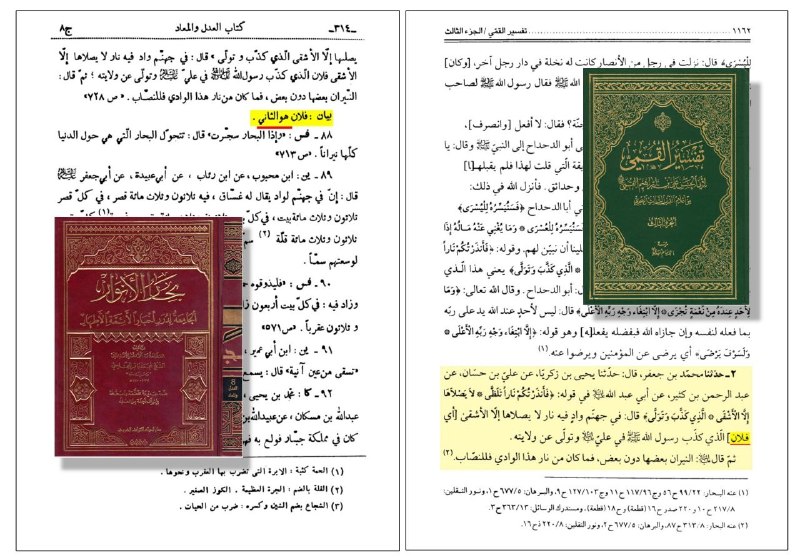 ١١٦٢ ........ تفسير القمّي / الجزء الثالث
لِلْيُسْرَى﴾ قال: نزلت في رجل من الأنصار كانت له نخلة في دار رجل آخر، [وكان]
ﷺ فقال رسول الله ﷺ لصاحب
نّة؟ فقال: لا أفعل [وانصرف]،
بي الدحداح إلى النبيّ ﷺ وقال: يا
يقة التي قلت لهذا فلم يقبلها[١]
وحدائق. فأنزل الله في ذلك:
ي أبا الدحداح ﴿فَسَنُيَسِّرُهُ لِلْيُسْرَى﴾
فَسَنُيَسِّرُهُ لِلْعُسْرَى * وَمَا يُغْنِي عَنْهُ مَالُهُ إِذَا
لينا أن نبيّن لهم. وقوله: ﴿فَأَنذَرْتُكُمْ نَاراً
* الَّذِي كَذَّبَ وَتَوَلَّى﴾ يعني هذا الّذي
أبو الدحداح. وقال الله تعالى: ﴿وَمَا
لِأَحَدٍ عِندَهُ مِنْ نِعْمَةٍ تُجْزَى * إِلَّا ابْتِغَاءَ وَجْهِ رَبِّهِ الْأَعْلَى﴾ قال: ليس لأحدٍ عند الله يد على ربّه
بما فعله لنفسه وإن جازاه الله فبفضله يفعله[ا] وهو قوله: ﴿إِلَّا ابْتِغَاءَ وَجْهِ رَبِّهِ الْأَعْلَى *
وَلَسَوْفَ يَرْضَى﴾ أي يرضى عن المؤمنين ويرضوا عنه.(١)
٢ـ حدّثنا محمّد بن جعفر، قال: حدّثنا يحيى بن زكريّا، عن عليّ بن حسان، عن
عبد الرحمن بن كثير، عن أبي عبد الله ﷺ في قوله: ﴿فَأَنذَرْتُكُمْ نَاراً تَلَظَّى * لَا يَصْلَاهَا
إِلَّا الْأَشْقَى * الَّذِي كَذَّبَ وَتَوَلَّى﴾ قال: في جهنّم وادٍ فيه نار لا يصلاها إلّا الأشقى [أي
فلان] الّذي كذّب رسول الله ﷺ في عليّ ﷺ وتولّى عن ولايته.
ثمّ قال ﷺ: النيران بعضها دون بعض، فما كان من نار هذا الوادي فللنصّاب.(٢)
(١) عنه البحار: ٩٩/٢٢ ح٥٦ وج١١٧/٩٦ ح١١ وج١٢٧/١٠٣ ح٩، والبرهان: ٦٧٧/٥ ح١، ونور الثقلين:
٢١٧/٨ ح١٠ و٢٢٠ صدر ح١٦ (قطعة) وح١٨ (قطعة)، ومستدرك الوسائل: ٣٦٣/١٣ ح٣.
(٢) عنه البحار: ٣١٣/٨ ح٨٧، والبرهان: ٦٧٧/٥ ح٢، ونور الثقلين: ٢٢٠/٨ ذح١٦.
تفسير القمي
الجزء الثالث
ج٨ كتاب العدل والمعاد ـ٣١٤ـ
يصليها إلّا الأشقى الّذي كذّب و تولّى» قال: في جهنّم واد فيه نار لا يصلاها إلّا
الأشقى فلان الّذي كذّب رسول الله ﷺ في عليّ ﷺ وتولّى عن ولايته؛ ثمّ قال:
النيران بعضها دون بعض، فما كان من نار هذا الوادي فللنصّاب. «ص ٧٢٨»
بيان: فلان هو الثاني.
٨٨ ـ فس: «وإذا البحار سجّرت» قال: تتحوّل البحار الّتي هي حول الدنيا
كلّها نيراناً. «ص٧١٣»
٨٩ ـ ين: ابن محبوب، عن ابن رئاب، عن أبي عبيدة، عن أبي جعفر ﷺ
قال: إنّ في جهنّم لواد يقال له غسّاق، فيه ثلاثون وثلاث مائة قصر، في كلّ قصر
ثلاثون وثلاث مائة بيت، في كلّ
ثلاثون وثلاث مائة قلّة (٢) سم
لوسعتهم سمّاً.
٩٠ ـ فس: «فليذوقوه حم
وزاد فيه: في كلّ بيت أربعون زا
و ثلاثون عقرباً. «ص٥٧١»
٩١ ـ ين: ابن أبي عمير،
«تسقى من عين آنية» قال: يسمع
٩٢ ـ كا: محمّد بن يحيى،
عبدالله بن مسكان، عن عبيدالله بن
كان في مملكة جبّار فولع به فه
(١) الحمة كثبة: الابرة التي تضرب بها العقرب ونحوها.
(٢) القلة بالضم: الجرة العظيمة. الكوز الصغير.
(٣) الشجاع بضم الشين وكسره: ضرب من الحيات.
بحار الأنوار
الجامعة لدرر أخبار الأئمة الأطهار
8